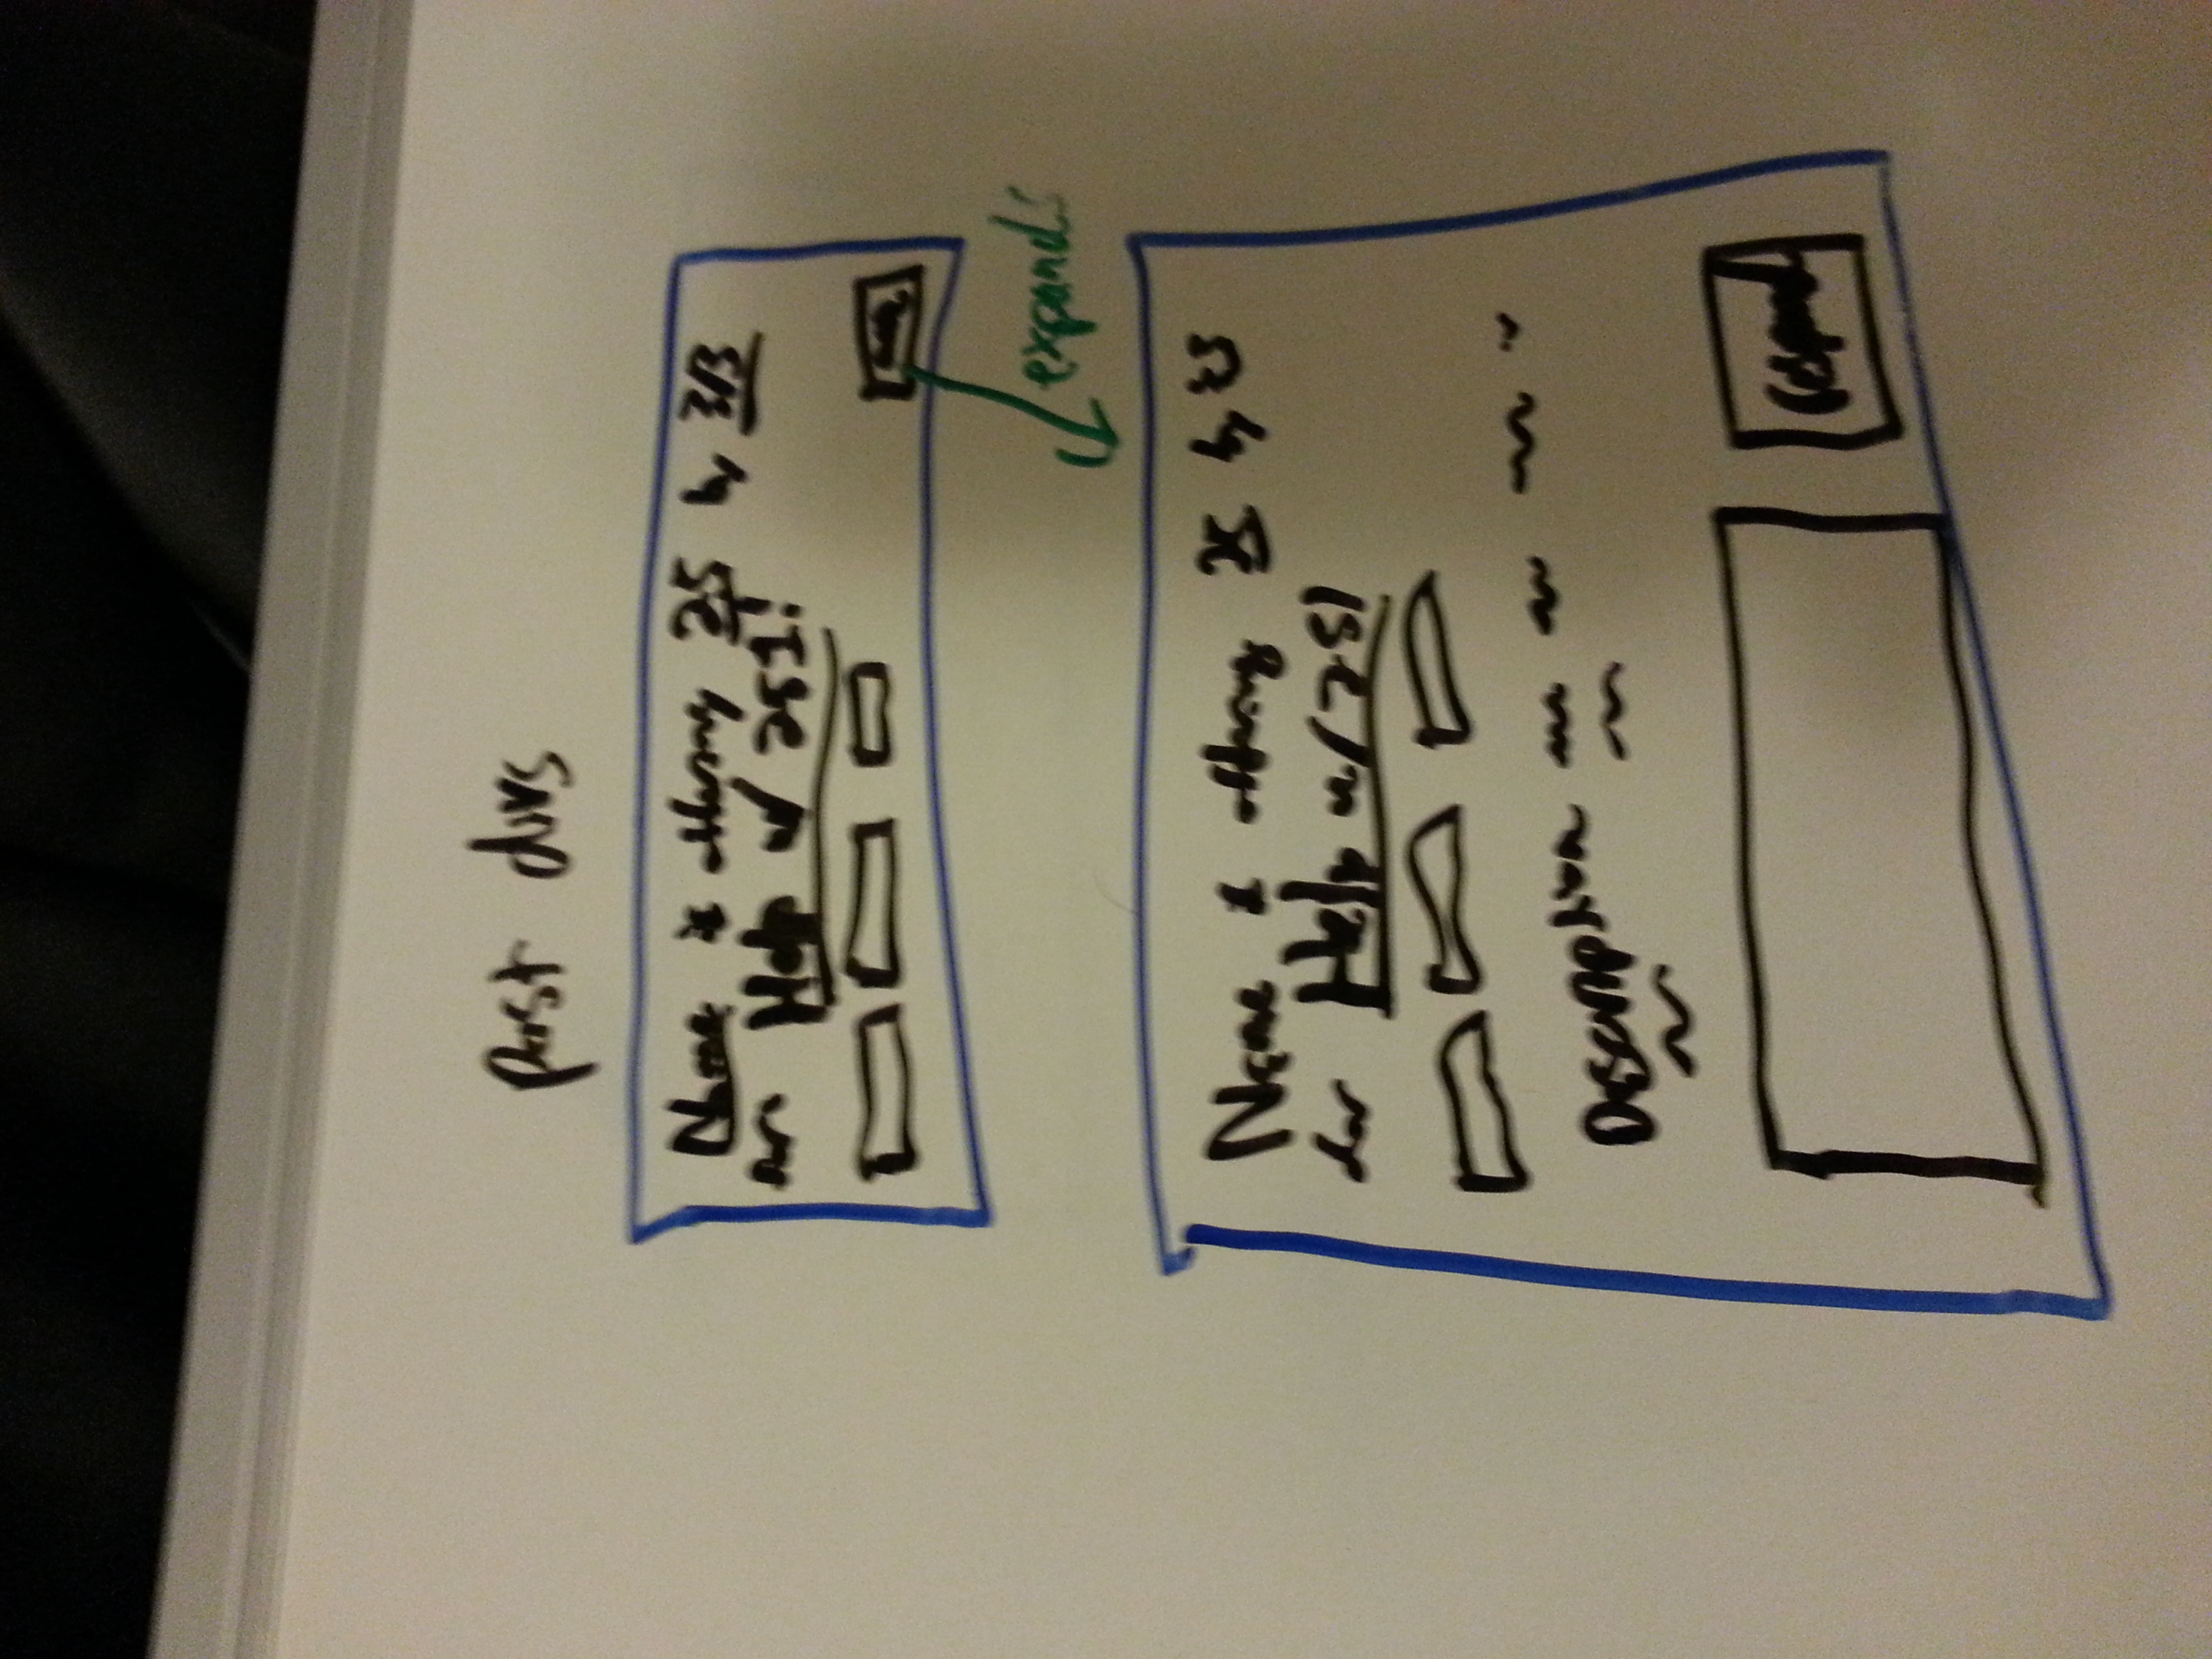 post divs
Name is offering 25 by 3/3
for Help w/ 251!
expands
Name is offering 25 by
for Help w/ 251
Description
respond